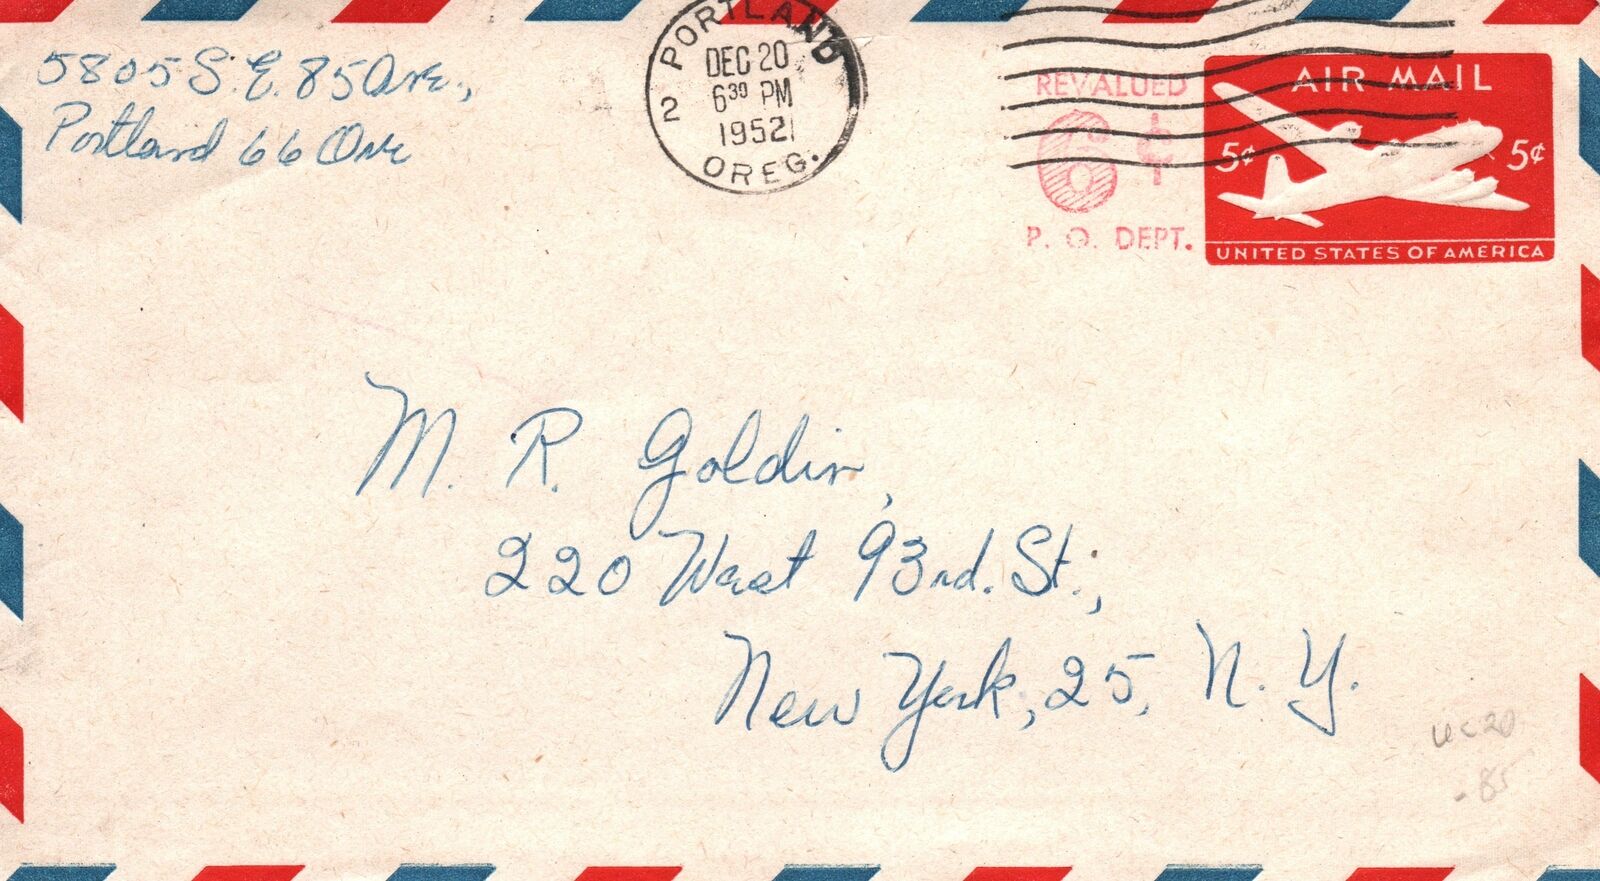 5805 S. E. 85 Ave.,
Portland 66 Ore
PORTLAND
2
DEC 20
6 30 PM
1952
OREG.
REVALUED
6¢
P. O. DEPT.
AIR MAIL
5¢ 5¢
UNITED STATES OF AMERICA
M. R. Goldin,
220 West 93rd. St.,
New York, 25, N. Y.
uc20
-85